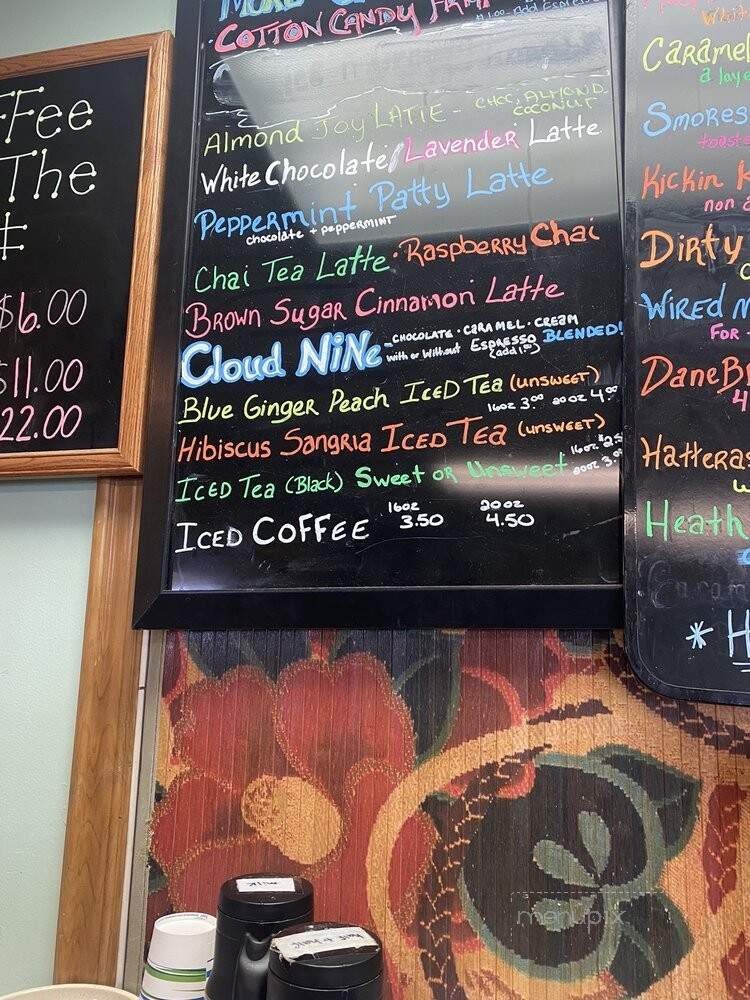 ffee
The
$6.00
$11.00
22.00
COTTON CANDY
Almond Joy LATTE - CHOC, ALMOND,
COCONUT
White Chocolate/Lavender Latte
Peppermint Patty Latte
chocolate + peppermint
Chai Tea Latte · Raspberry Chai
Brown Sugar Cinnamon Latte
Cloud NiNe - CHOCOLATE · CARAMEL · CREAM
with or without Espresso BLENDED!
Blue Ginger Peach ICED Tea (unsweet)
16oz 3.00 20oz 4.00
Hibiscus Sangria ICED Tea (unsweet)
ICED Tea (Black) Sweet or Unsweet
16oz $2.5
20oz 3.0
ICED COFFEE 16oz 3.50 20oz 4.50
Caramel
a laye
Smores
toaste
Kickin K
non a
Dirty
WIRED N
FOR
DaneBr
Hatteras
Heath
* H
milk
half & half
menupix